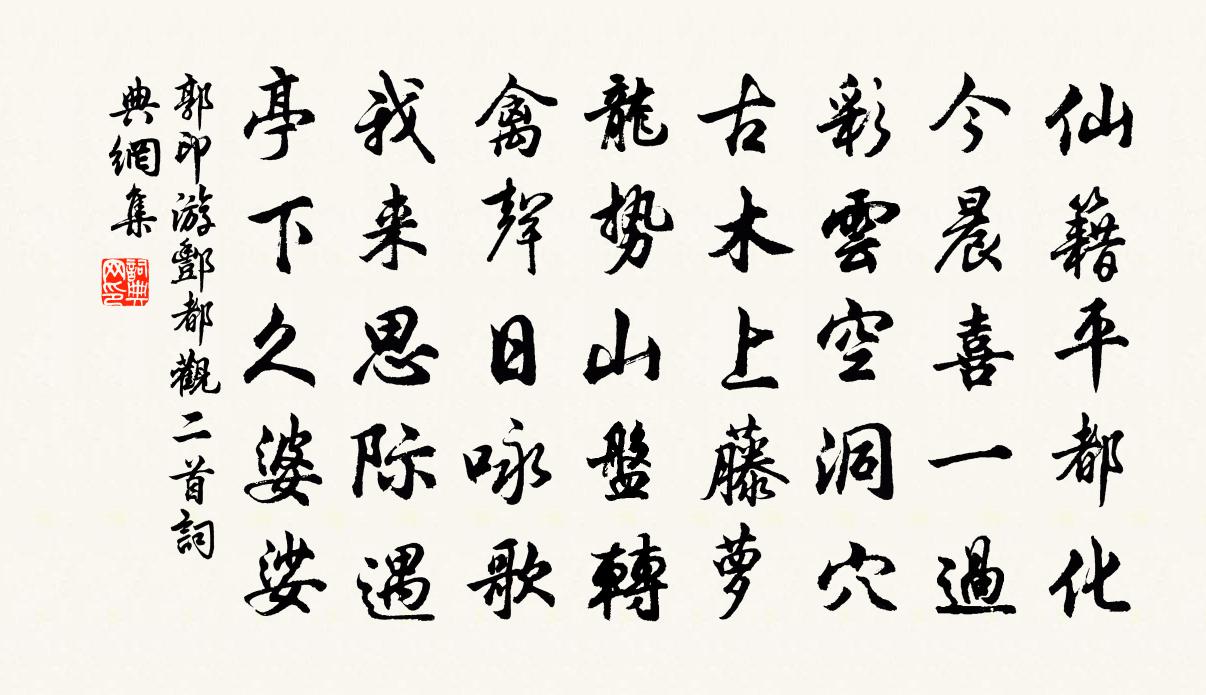 仙籍平都化
今晨喜一過
彩雲空洞穴
古木上藤萝
龍勢山盤轉
禽聲日咏歌
我来思际遇
亭下久婆娑
郭印游酆都觀二首詞
典網集
詞典
网印